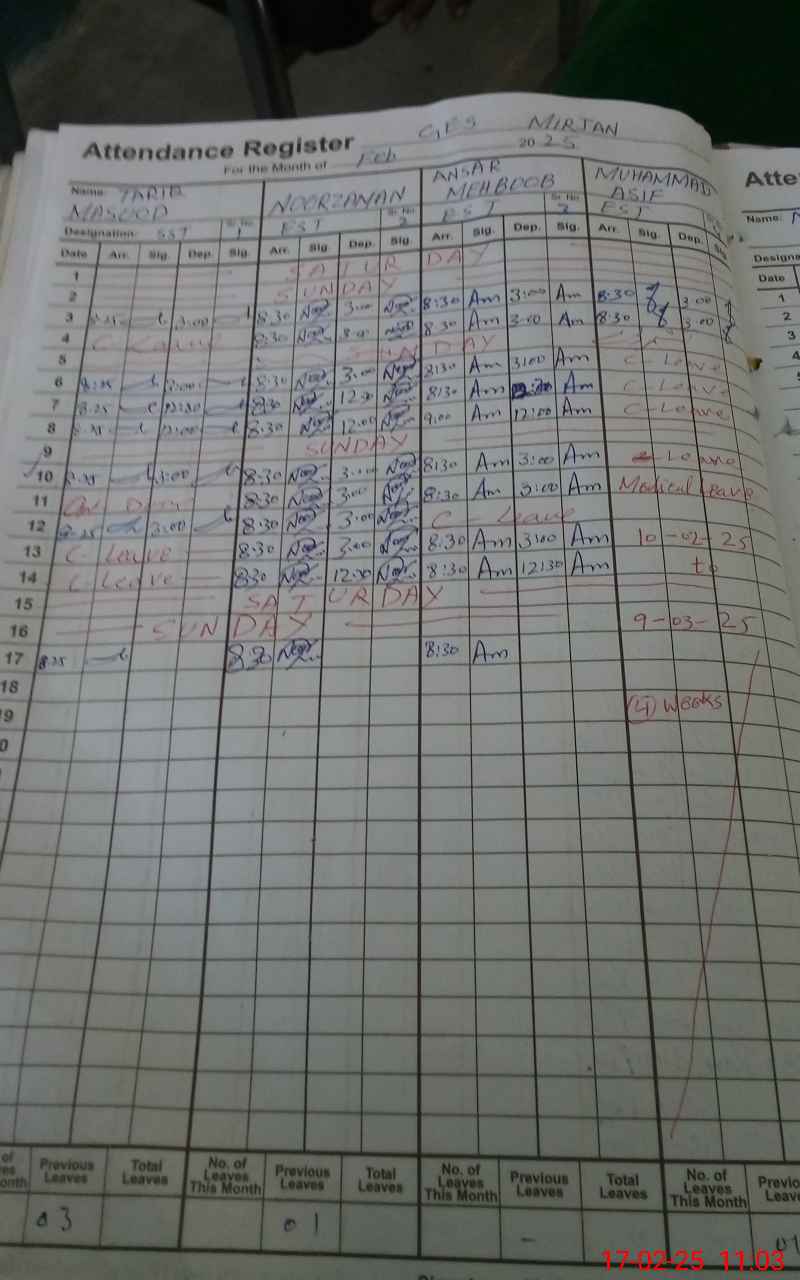 GES MIRJAN
Attendance Register
For the Month of Feb 2025
Name: TARIQ MASOOD NOORZAMAN ANSAR MEHBOOB MUHAMMAD ASIF
Designation: SST EST EST EST
Date Arr. Sig. Dep. Sig. Arr. Sig. Dep. Sig. Arr. Sig. Dep. Sig. Arr. Sig. Dep. Sig.
1 SATURDAY
2 SUNDAY
3 8:25 3:00 8:30 3:00 8:30 Am 3:00 Am 8:30 3:00
4 C-Leave 8:30 3:00 8:30 Am 3:00 Am 8:30 3:00
5 SUNDAY
6 8:25 3:00 8:30 3:00 8:30 Am 3:00 Am C-Leave
7 8:25 12:30 8:30 12:30 8:30 Am Am C-Leave
8 8:25 12:00 8:30 12:00 9:00 Am 12:00 Am C-Leave
9 SUNDAY
10 8:25 3:00 8:30 3:00 8:30 Am 3:00 Am Leave
11 8:30 3:00 8:30 Am 3:00 Am Medical Leave
12 8:25 3:00 8:30 3:00 C-Leave
13 C-Leave 8:30 3:00 8:30 Am 3:00 Am 10-02-25
14 C-Leave 8:30 12:30 8:30 Am 12:30 Am to
15 SATURDAY
16 SUNDAY 9-03-25
17 8:25 8:30 8:30 Am
18
19 (4) Weeks
Previous Leaves Total Leaves No. of Leaves This Month Previous Leaves Total Leaves No. of Leaves This Month Previous Leaves Total Leaves No. of Leaves This Month
03 01 - 01
Name:
Date
1
2
3
4
17-02-25 11:03